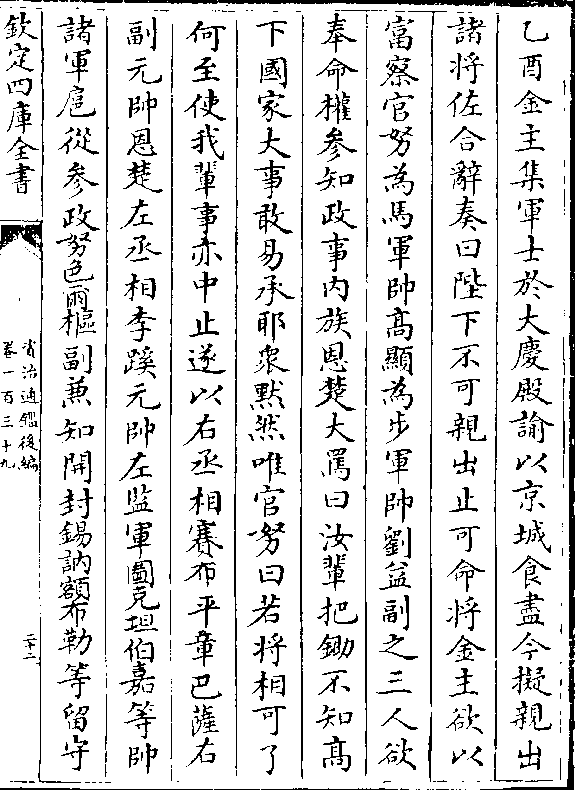 乙酉金主集軍士於大慶殿諭以京城食盡今擬親出
諸將佐合辭奏曰陛下不可親出止可命將金主欲以
富察官努為馬軍帥高顯為步軍帥劉益副之三人欲
奉命權參知政事内族恩楚大罵曰汝輩把鋤不知髙
下國家大事敢易承耶衆黙然唯官努曰若將相可了
何至使我輩事亦中止遂以右丞相賽布平章巴薩右
副元帥恩楚左丞相李蹊元帥左監軍圖克坦伯嘉等帥
諸軍扈從參政努色爾樞副兼知開封錫訥額布勒等留守
欽定四庫全書
資治通鑑後編
卷一百三十九
二十二